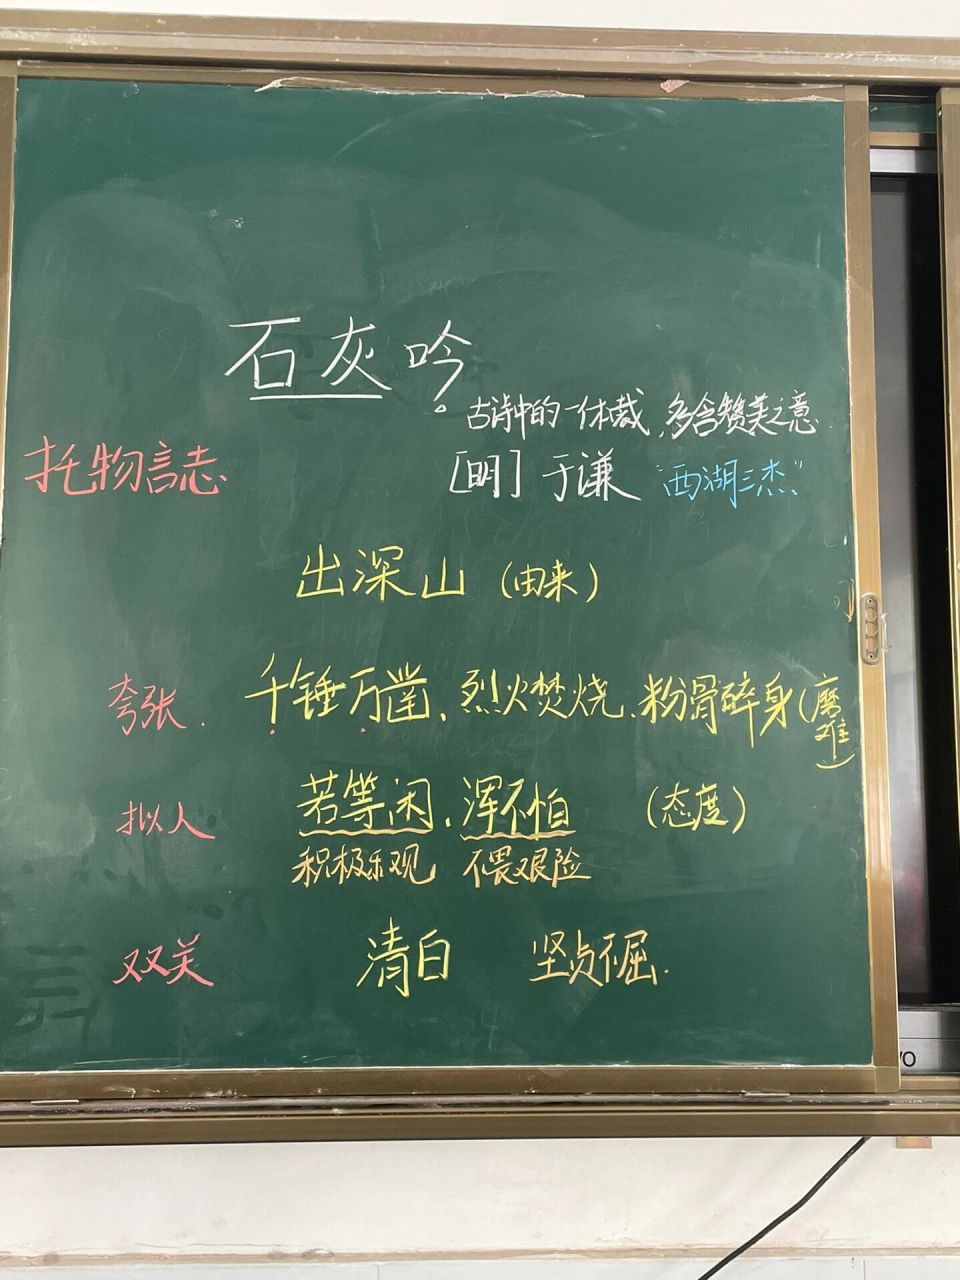 石灰吟
古诗中的一体裁,多含赞美之意.
托物言志.
[明]于谦 "西湖三杰"
出深山(由来)
夸张. 千锤万凿.烈火焚烧.粉骨碎身(磨难)
拟人 若等闲.浑不怕 (态度)
积极乐观 不畏艰险
双关 清白 坚贞不屈.
vo